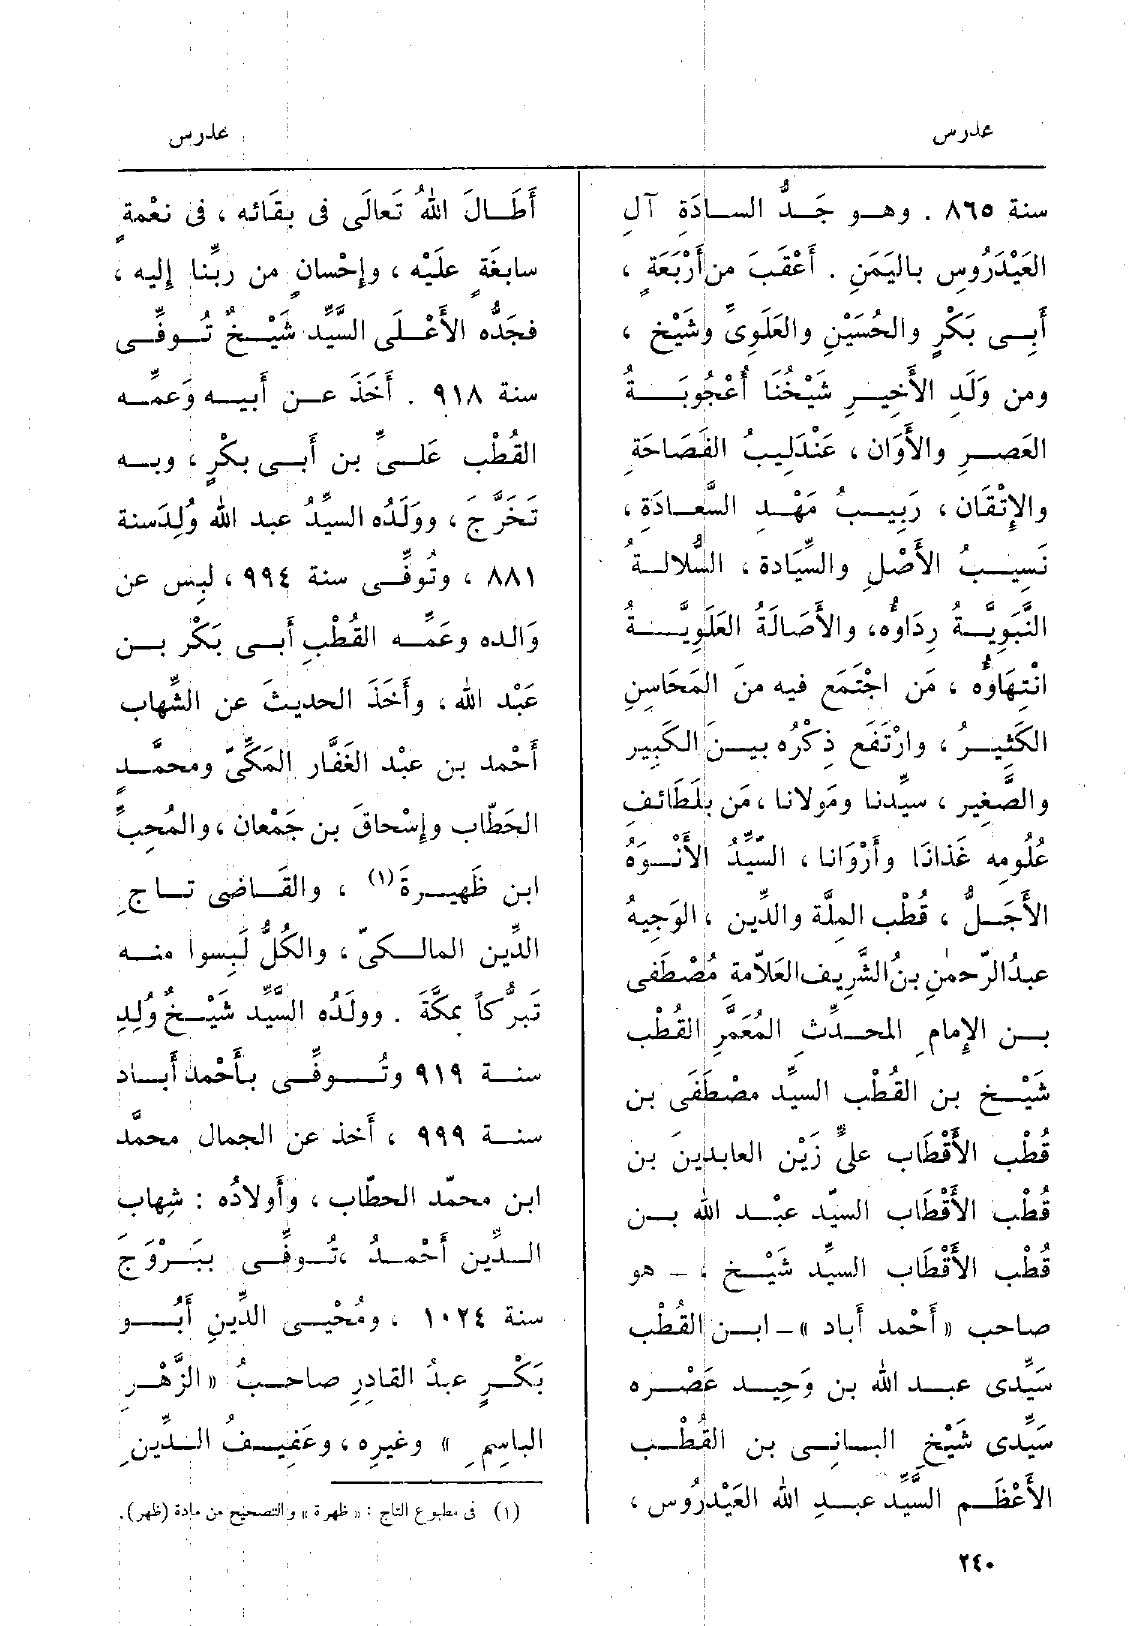 عدرس
عدرس
سنة ٨٦٥ . وهــو جَــدُّ الســادَةِ آلِ
العَيْدَرُوس باليَمَنِ . أَعْقَبَ من أَرْبَعَةٍ ،
أَبِــى بَكْرٍ والحُسَيْنِ والعَلَوِىِّ وشَيْخ ،
ومن وَلَدِ الأَخِيــرِ شَيْخُنَا أُعْجُوبَــةُ
العَصــرِ والأَوَان ، عَنْدَلِيبُ الفَصَاحَةِ
والإِتْقَان ، رَبِيــبُ مَهْــدِ السَّعَــادَةِ ،
نَسِيــبُ الأَصْلِ والسِّيَادة ، السُّلالــةُ
النَّبَوِيَّــةُ رِدَاوُه، والأَصَالَةُ العَلَوِيَّــةُ
انْتِهاوُه ، مَن اجْتَمَع فيه منَ المَحَاسِنِ
الكَثِيــرُ ، وارْتَفَع ذِكْرُه بيــنَ الكَبِير
والصَّغِير ، سيِّدنا ومَولانا ، مَن بلَطَائف
عُلُومِه غَذانَا وأَرْوَانا ، السَّيِّدُ الأَنْــوَهُ
الأَجَــلُّ ، قُطْب المِلَّة والدِّين ، الوَجِيهُ
عبدُالرَّحمٰن بنُ الشَّرِيف العَلاَّمة مُصْطَفى
بــن الإِمامِ المُحــدِّث المُعَمَّرِ القُطْب
شَيْــخ بن القُطْب السيِّد مصْطَفَى بن
قُطْب الأَقْطَاب علىٍّ زَيْن العابدِينَ بن
قُطْب الأَقْطَاب السيّد عبْــد الله بــن
قُطْب الأَقْطَاب السيِّد شَيْــخ ، – هو
صاحب « أَحْمد أباد » – ابــن القُطْب
سَيِّدى عبــد الله بن وَحِيــد عَصْــره
سَيِّدى شَيْخ البــانــى بن القُطْــب
الأَعْظَــم السيَّد عبــدِ الله العَيْدَرُوس ،
أَطَــالَ اللهُ تَعالَى فى بقَائه ، فى نعْمةٍ
سابغَةٍ علَيْه ، وإِحْسانٍ من ربِّنا إليه ،
فجَدُّه الأَعْــلَى السيِّد شَيْــخٌ تُــوفِّــى
سنة ٩١٨ . أَخَذَ عــن أَبيــه وَعمِّــه
القُطْب عَلــىِّ بن أَبــى بكْرٍ ، وبــه
تَخَرَّجَ ، وولَدُه السيِّدُ عبد الله وُلِدَ سنة
٨٨١ ، وتُوفِّــى سنة ٩٩٤ ، لبِس عن
والده وعَمِّــه القُطْبِ أَبــى بَكْر بــن
عَبْد الله ، وأَخَذَ الحديثَ عن الشِّهاب
أَحْمد بن عبْد الغَفَّار المَكِّىّ ومحمَّــدٍ
الحَطّاب وإِسْحاقَ بن جَمْعان ، والمُحِبِّ
ابن ظَهِيــرة(١) ، والقَــاضى تــاجِ
الدِّين المالــكىّ ، والكُلُّ لَبِسوا منــه
تَبرُّكاً بمكَّةَ . وولَدُه السَّيِّد شَيْــخٌ وُلِدِ
سنــة ٩١٩ وتُــوفِّــى بأَحْمدَ أَبــاد
سنــة ٩٩٩ ، أَخذ عن الجمال محمَّد
ابن محمّد الحطّاب ، وأَولادُه : شِهاب
الــدِّين أَحْمــدُ ،تُــوفِّــى ببَــرْوَج
سنة ١٠٢٤ ، ومُحْيــى الدِّينِ أَبُــو
بَكْــرٍ عبدُ القادِرِ صاحــبُ « الزَّهْــرِ
الباسِمِ » وغيرِه ، وعَفِيــفُ الــدِّينِ
(١) فى مطبوع التاج : « ظهرة » والتصحيح من مادة (ظهر).
٢٤٠